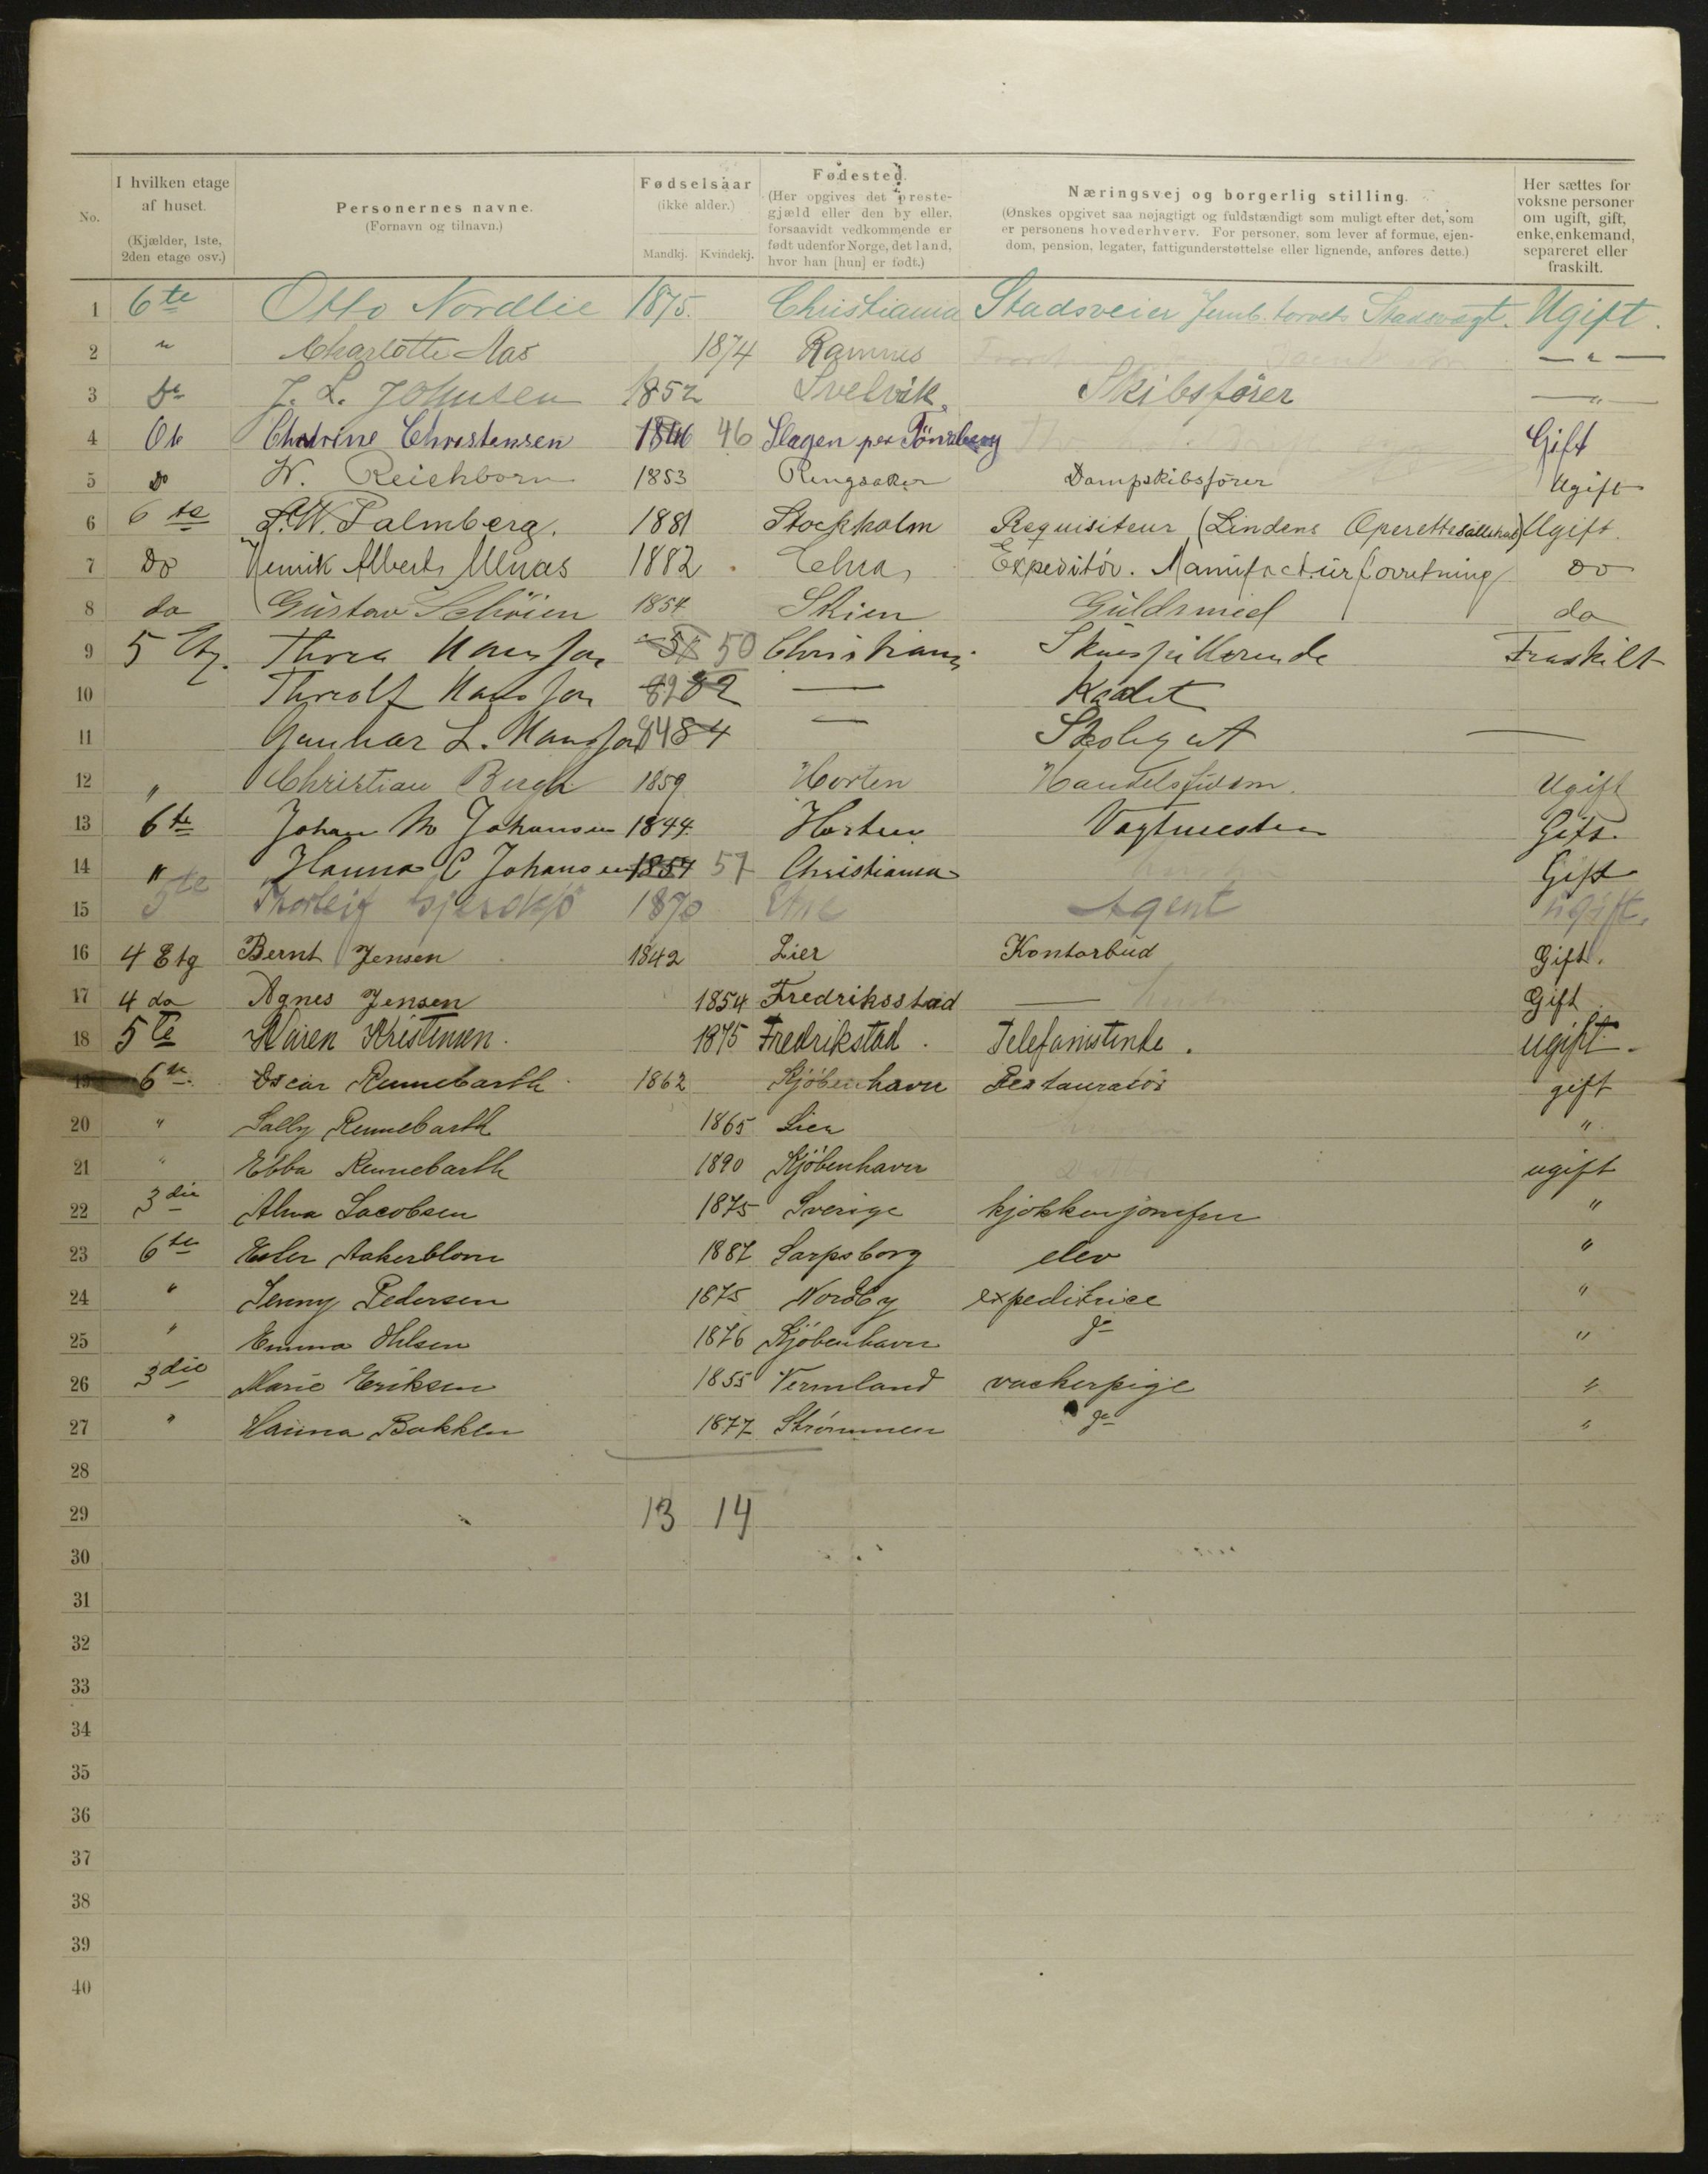 No.
I hvilken etage af huset. (Kjælder, 1ste, 2den etage osv.)
Personernes navne. (Fornavn og tilnavn.)
Fødselsaar (ikke alder.) Mandkj. Kvindekj.
Fødested. (Her opgives det prestegjæld eller den by eller, forsaavidt vedkommende er født udenfor Norge, det land, hvor han [hun] er født.)
Næringsvej og borgerlig stilling. (Ønskes opgivet saa nøjagtigt og fuldstændigt som muligt efter det, som er personens hovederhverv. For personer, som lever af formue, ejendom, pension, legater, fattigunderstøttelse eller lignende, anføres dette.)
Her sættes for voksne personer om ugift, gift, enke, enkemand, separeret eller fraskilt.
1 6te Otto Nordlie 1875. Christiania Stadsveier Jernb. torvets Stadsvægt. Ugift.
2 " Charlotte Aas 1874 Ramnes — " —
3 J. L. Johnsen 1852 Svelvik. Skibsfører — " —
4 Christensen 1846 46 Slagen per Tönsberg Gift
5 Do W. Reichborn 1853 Ringsaker Dampskibsfører Ugift
6 6te Palmberg. 1881 Stockholm Requisiteur (Lindens Operettesällskab) Ugift.
7 Do Henrik Albert 1882 Chra Expeditör. Manufacturforretning Do
8 do Gustav Schöien 1854 Skien Guldsmed do
9 5 Etg. 50 Christiania Skuespillerinde Fraskilt
10 82 — Kadet
11 84 — Skolegut —
12 " Christian Bergh 1859 Horten Handelsfuldm. Ugift
13 6te Johan M Johansen 1844. Horten Vagtmester Gift.
14 " Hanna C Johansen 1857 57 Christiania Gift
15 5te Thorleif 1870 Agent ugift.
16 4 Etg Bernt Jensen 1842 Lier Kontorbud Gift.
17 4 do Agnes Jensen 1854 Fredriksstad — Gift
18 5te Karen Kristensen. 1875 Fredrikstad. Telefonistinde. ugift.
19 6te. Oscar Rennebarth 1862 Kjöbenhavn Restauratör gift
20 " Sally Rennebarth 1865 Lier "
21 " Ebba Rennebarth 1890 Kjöbenhavn ugift
22 3die Alma Jacobsen 1875 Sverige kjøkkenjomfru "
23 6te Ester Aakerblom 1887 Sarpsborg elev "
24 " Jenny Pedersen 1875 Nordby expeditrice "
25 " Emma Ohlsen 1876 Kjöbenhavn "
26 3die Marie Eriksen 1855 Vermland vaskerpige "
27 " Hanna Bakken 1877 Strömmen "
28
29 13 14
30
31
32
33
34
35
36
37
38
39
40